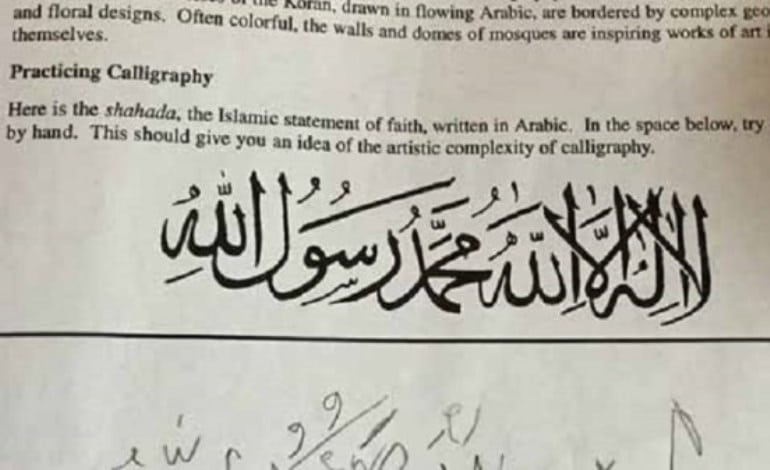 of the Koran, drawn in flowing Arabic, are bordered by complex geo
and floral designs. Often colorful, the walls and domes of mosques are inspiring works of art i
themselves.
Practicing Calligraphy
Here is the shahada, the Islamic statement of faith, written in Arabic. In the space below, try
by hand. This should give you an idea of the artistic complexity of calligraphy.
لا إله إلا الله محمد رسول الله